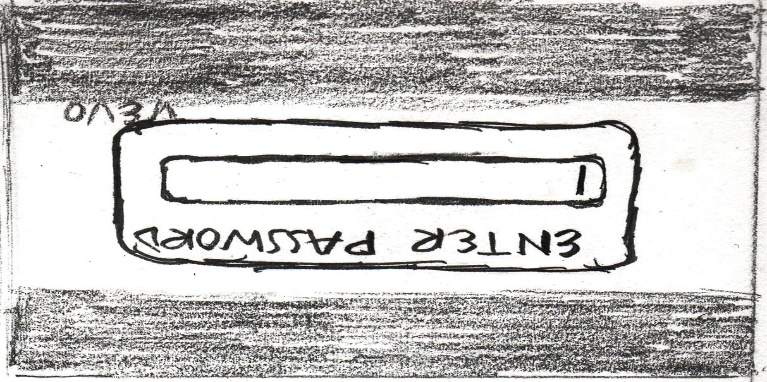 ENTER PASSWORD
VEVO